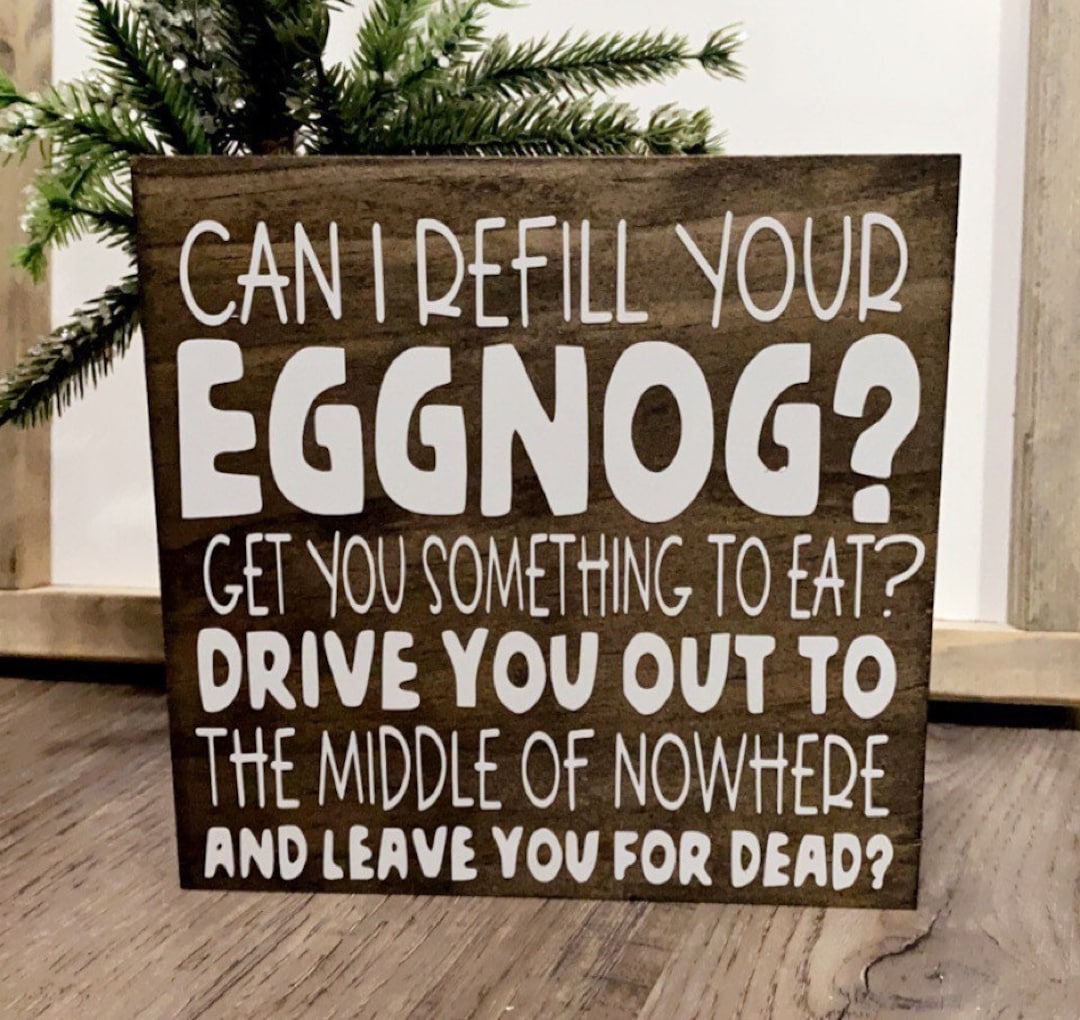 CAN I REFILL YOUR
EGGNOG?
GET YOU SOMETHING TO EAT?
DRIVE YOU OUT TO
THE MIDDLE OF NOWHERE
AND LEAVE YOU FOR DEAD?